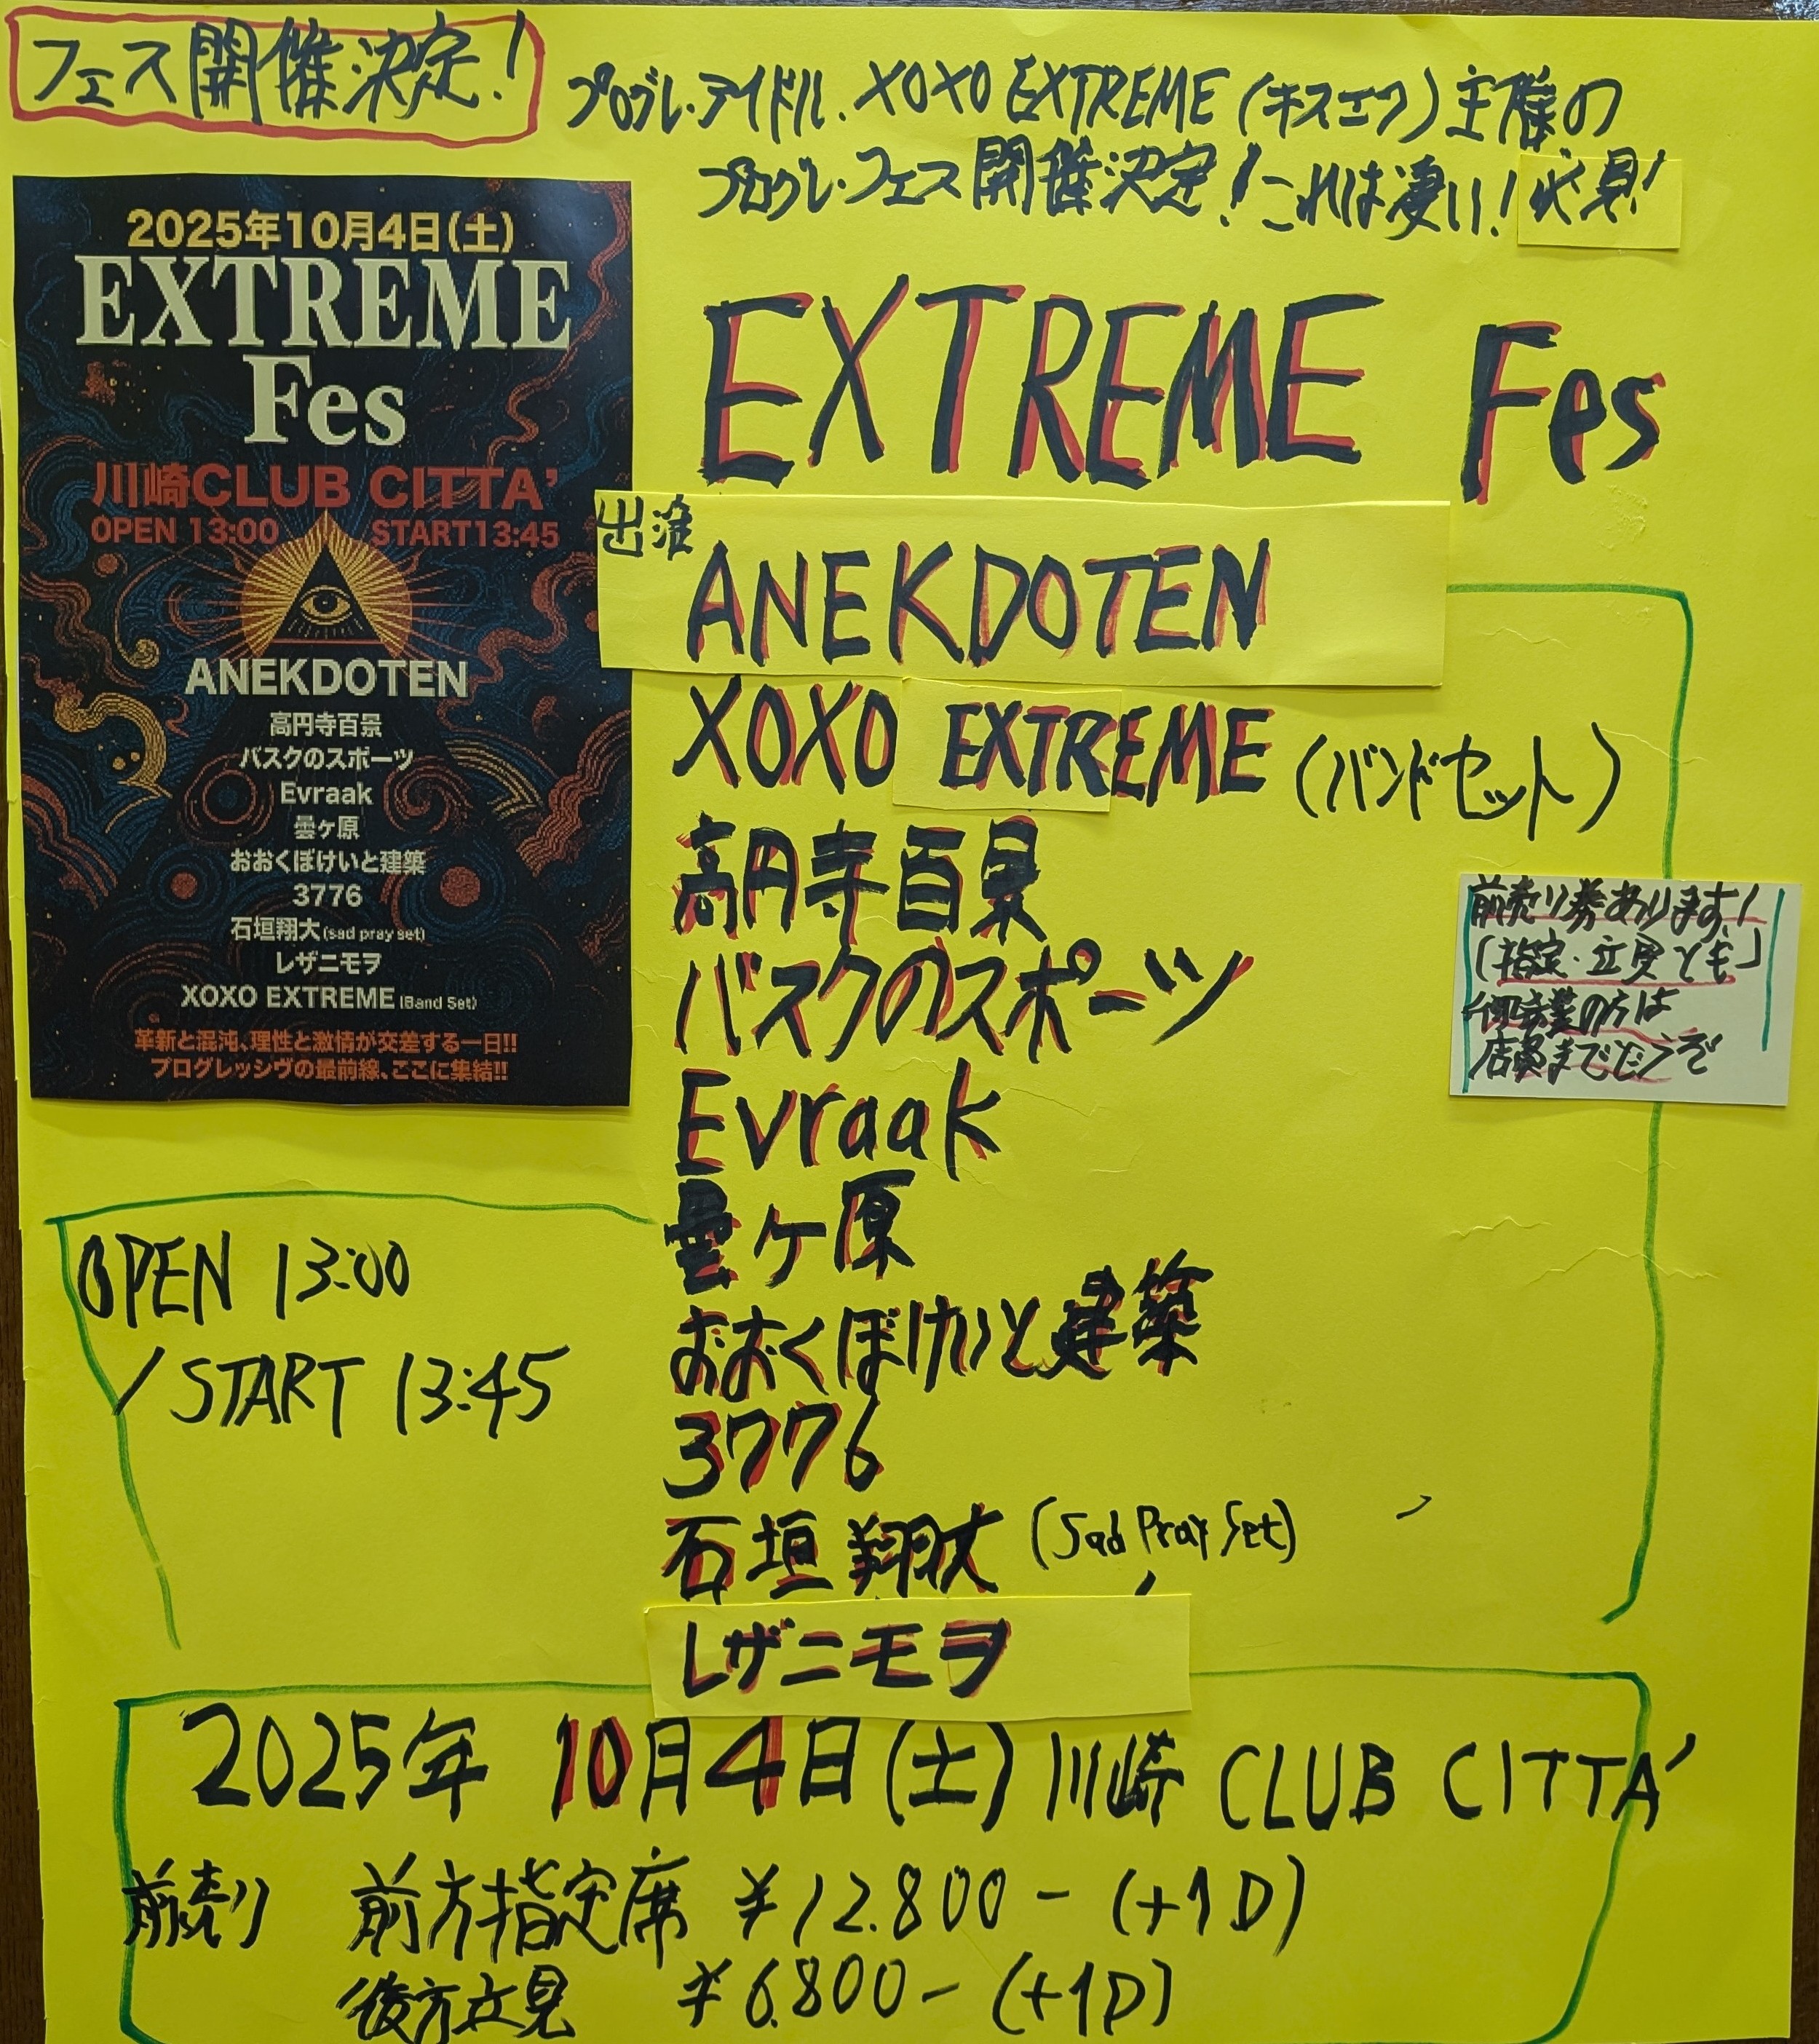 フェス開催決定!
プログレ・アイドル.XOXO EXTREME(キスエク)主催の
プログレ・フェス開催決定!これは凄い!必見!
2025年10月4日(土)
EXTREME
Fes
川崎CLUB CITTA'
OPEN 13:00 START13:45
ANEKDOTEN
高円寺百景
バスクのスポーツ
Evraak
曇ヶ原
おおくぼけいと建築
3776
石垣翔大(sad pray set)
レザニモヲ
XOXO EXTREME(Band Set)
革新と混沌、理性と激情が交差する一日!!
プログレッシヴの最前線、ここに集結!!
EXTREME Fes
出演
ANEKDOTEN
XOXO EXTREME (バンドセット)
高円寺百景
バスクのスポーツ
Evraak
曇ヶ原
おおくぼけいと建築
3776
石垣翔大(Sad Pray Set)
レザニモヲ
前売り券あります!
(指定・立見とも)
御希望の方は
店員までどうぞ
OPEN 13:00
/START 13:45
2025年 10月4日(土)川崎 CLUB CITTA'
前売り 前方指定席 ¥12.800-(+1D)
後方立見 ¥6.800-(+1D)